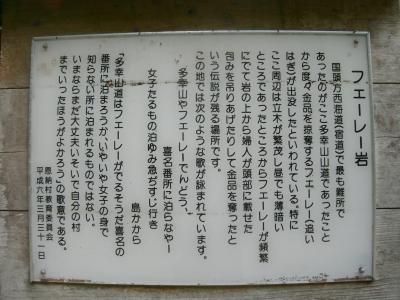 フェーレー岩
国頭方西海道(宿道)で最も難所で
あったのがここ多幸山山道であったこと
から度々金品を掠奪するフェーレー(追い
はぎ)が出没したといわれている。特に
ここ周辺は立木が繁茂し昼でも薄暗い
ところであったところからフェーレーが頻繁
にでて岩の上から婦人が頭部に載せた
包みを吊りあげたりして金品を奪ったと
いう伝説が残る場所です。
この地では次のような歌が詠まれています。
多幸山やフェーレーでんどう、
喜名番所に泊らなやー
女子たるもの泊ゆみ急ぢちじ行き
島かから
「多幸山道はフェーレーがでるそうだ喜名の
番所に泊まろうか、いやいや女子の身で
知らない所に泊まれるものではない。
いまならまだ大丈夫いそいで自分の村
までいったほうがよかろう」の歌意である。
平成六年三月三十一日
恩納村教育委員会